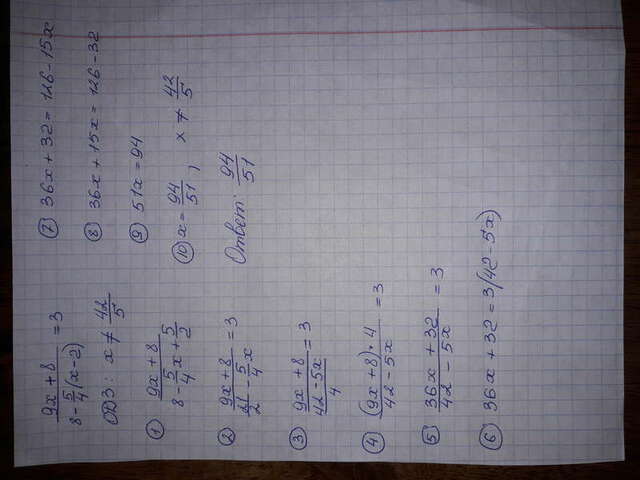 (9x + 8)/(8 - 5/4(x - 2)) = 3
ОДЗ: x ≠ 42/5
① (9x + 8)/(8 - 5/4x + 5/2)
② (9x + 8)/(21/2 - 5/4x) = 3
③ (9x + 8)/((42 - 5x)/4) = 3
④ ((9x + 8) · 4)/(42 - 5x) = 3
⑤ (36x + 32)/(42 - 5x) = 3
⑥ 36x + 32 = 3(42 - 5x)
⑦ 36x + 32 = 126 - 15x
⑧ 36x + 15x = 126 - 32
⑨ 51x = 94
⑩ x = 94/51, x ≠ 42/5
Ответ: 94/51